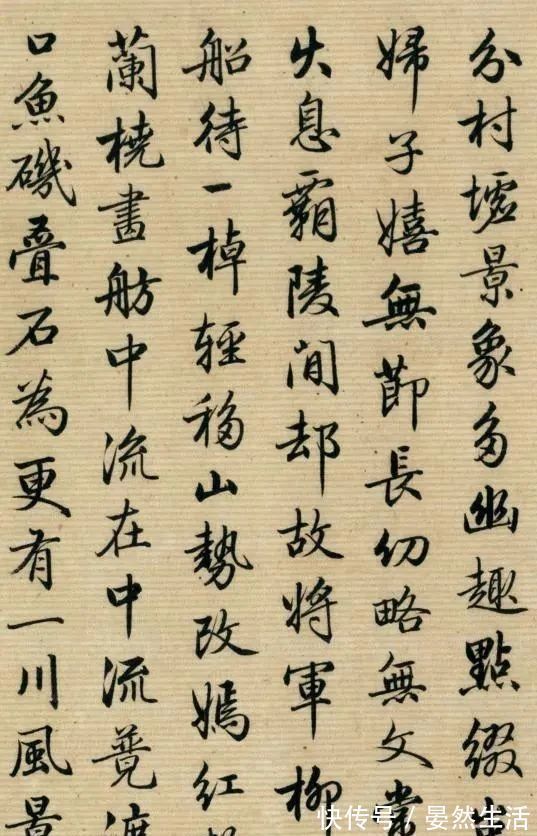 分村墟景象多幽趣點綴
婦子嬉無節長幼略無文
火息霸陵間却故將軍柳
船待一棹輕移山勢改嫣紅
蘭橈畫舫中流在中流渡
口魚磯叠石為更有一川風景
快传号 / 晏然生活